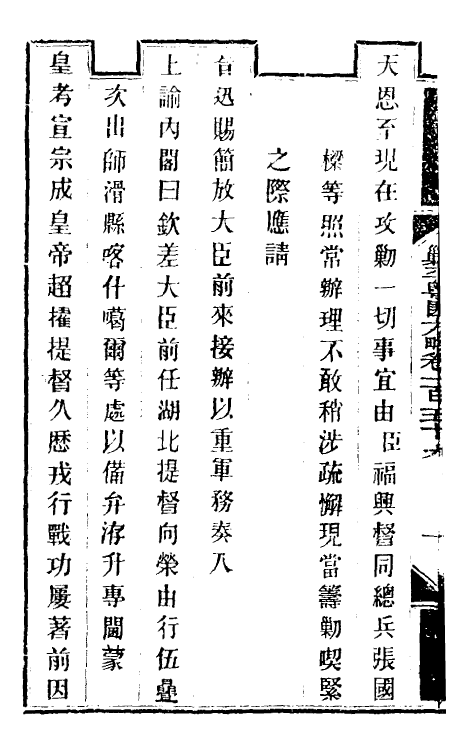 天恩至現在攻勦一切事宜由臣福興督同總兵張國
樑等照常辦理不敢稍涉疏懈現當籌勦喫緊
之際應請
旨迅賜簡放大臣前來接辦以重軍務奏入
上諭內閣曰欽差大臣前任湖北提督向榮由行伍疊
次出師滑縣喀什噶爾等處以備弁洊升專閫蒙
皇考宣宗成皇帝超擢提督久歷戎行戰功屢著前因